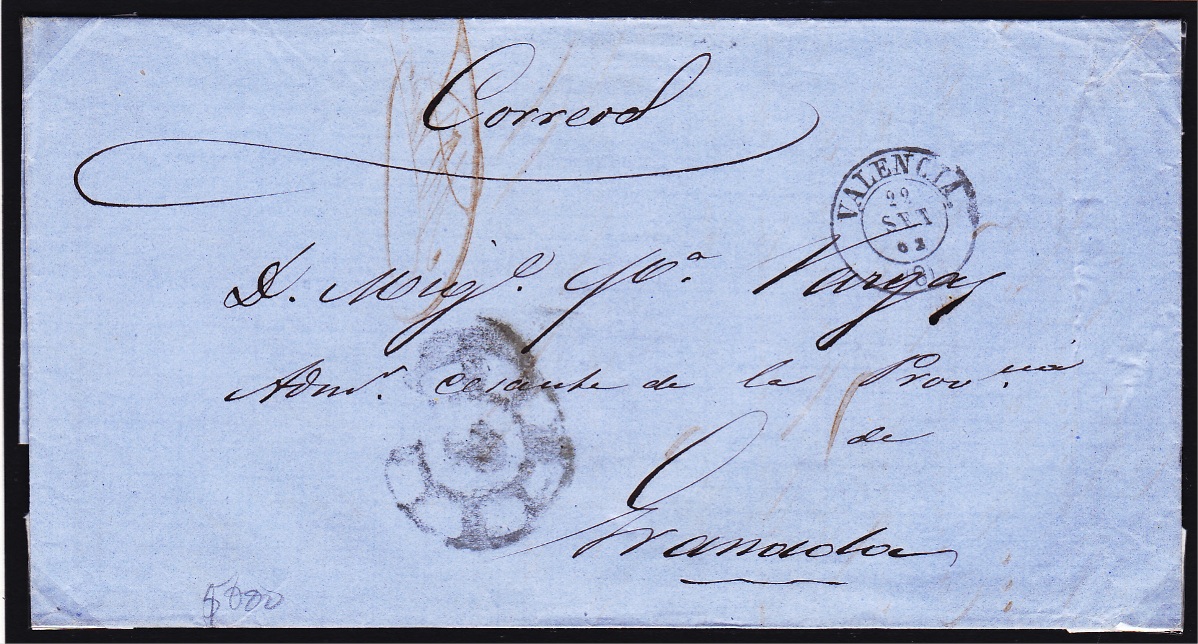 Correos
VALENCIA.
22
SET
62
(8)
D. Migl. Ma. Vargas
Admr. cesante de la Provncia
de
Granada